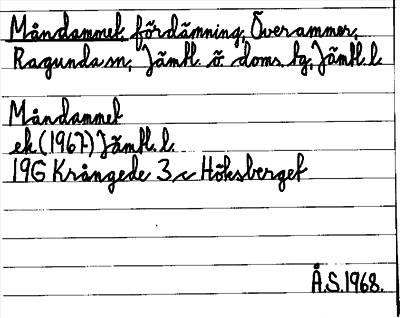 Måndammet, fördämning, Överammer,
Ragunda sn, Jämtl. ö doms. tg, Jämtl. l.
Måndammet
ek (1967) Jämtl. l.
19G Krångede 3 c Höksberget
Å.S. 1968.